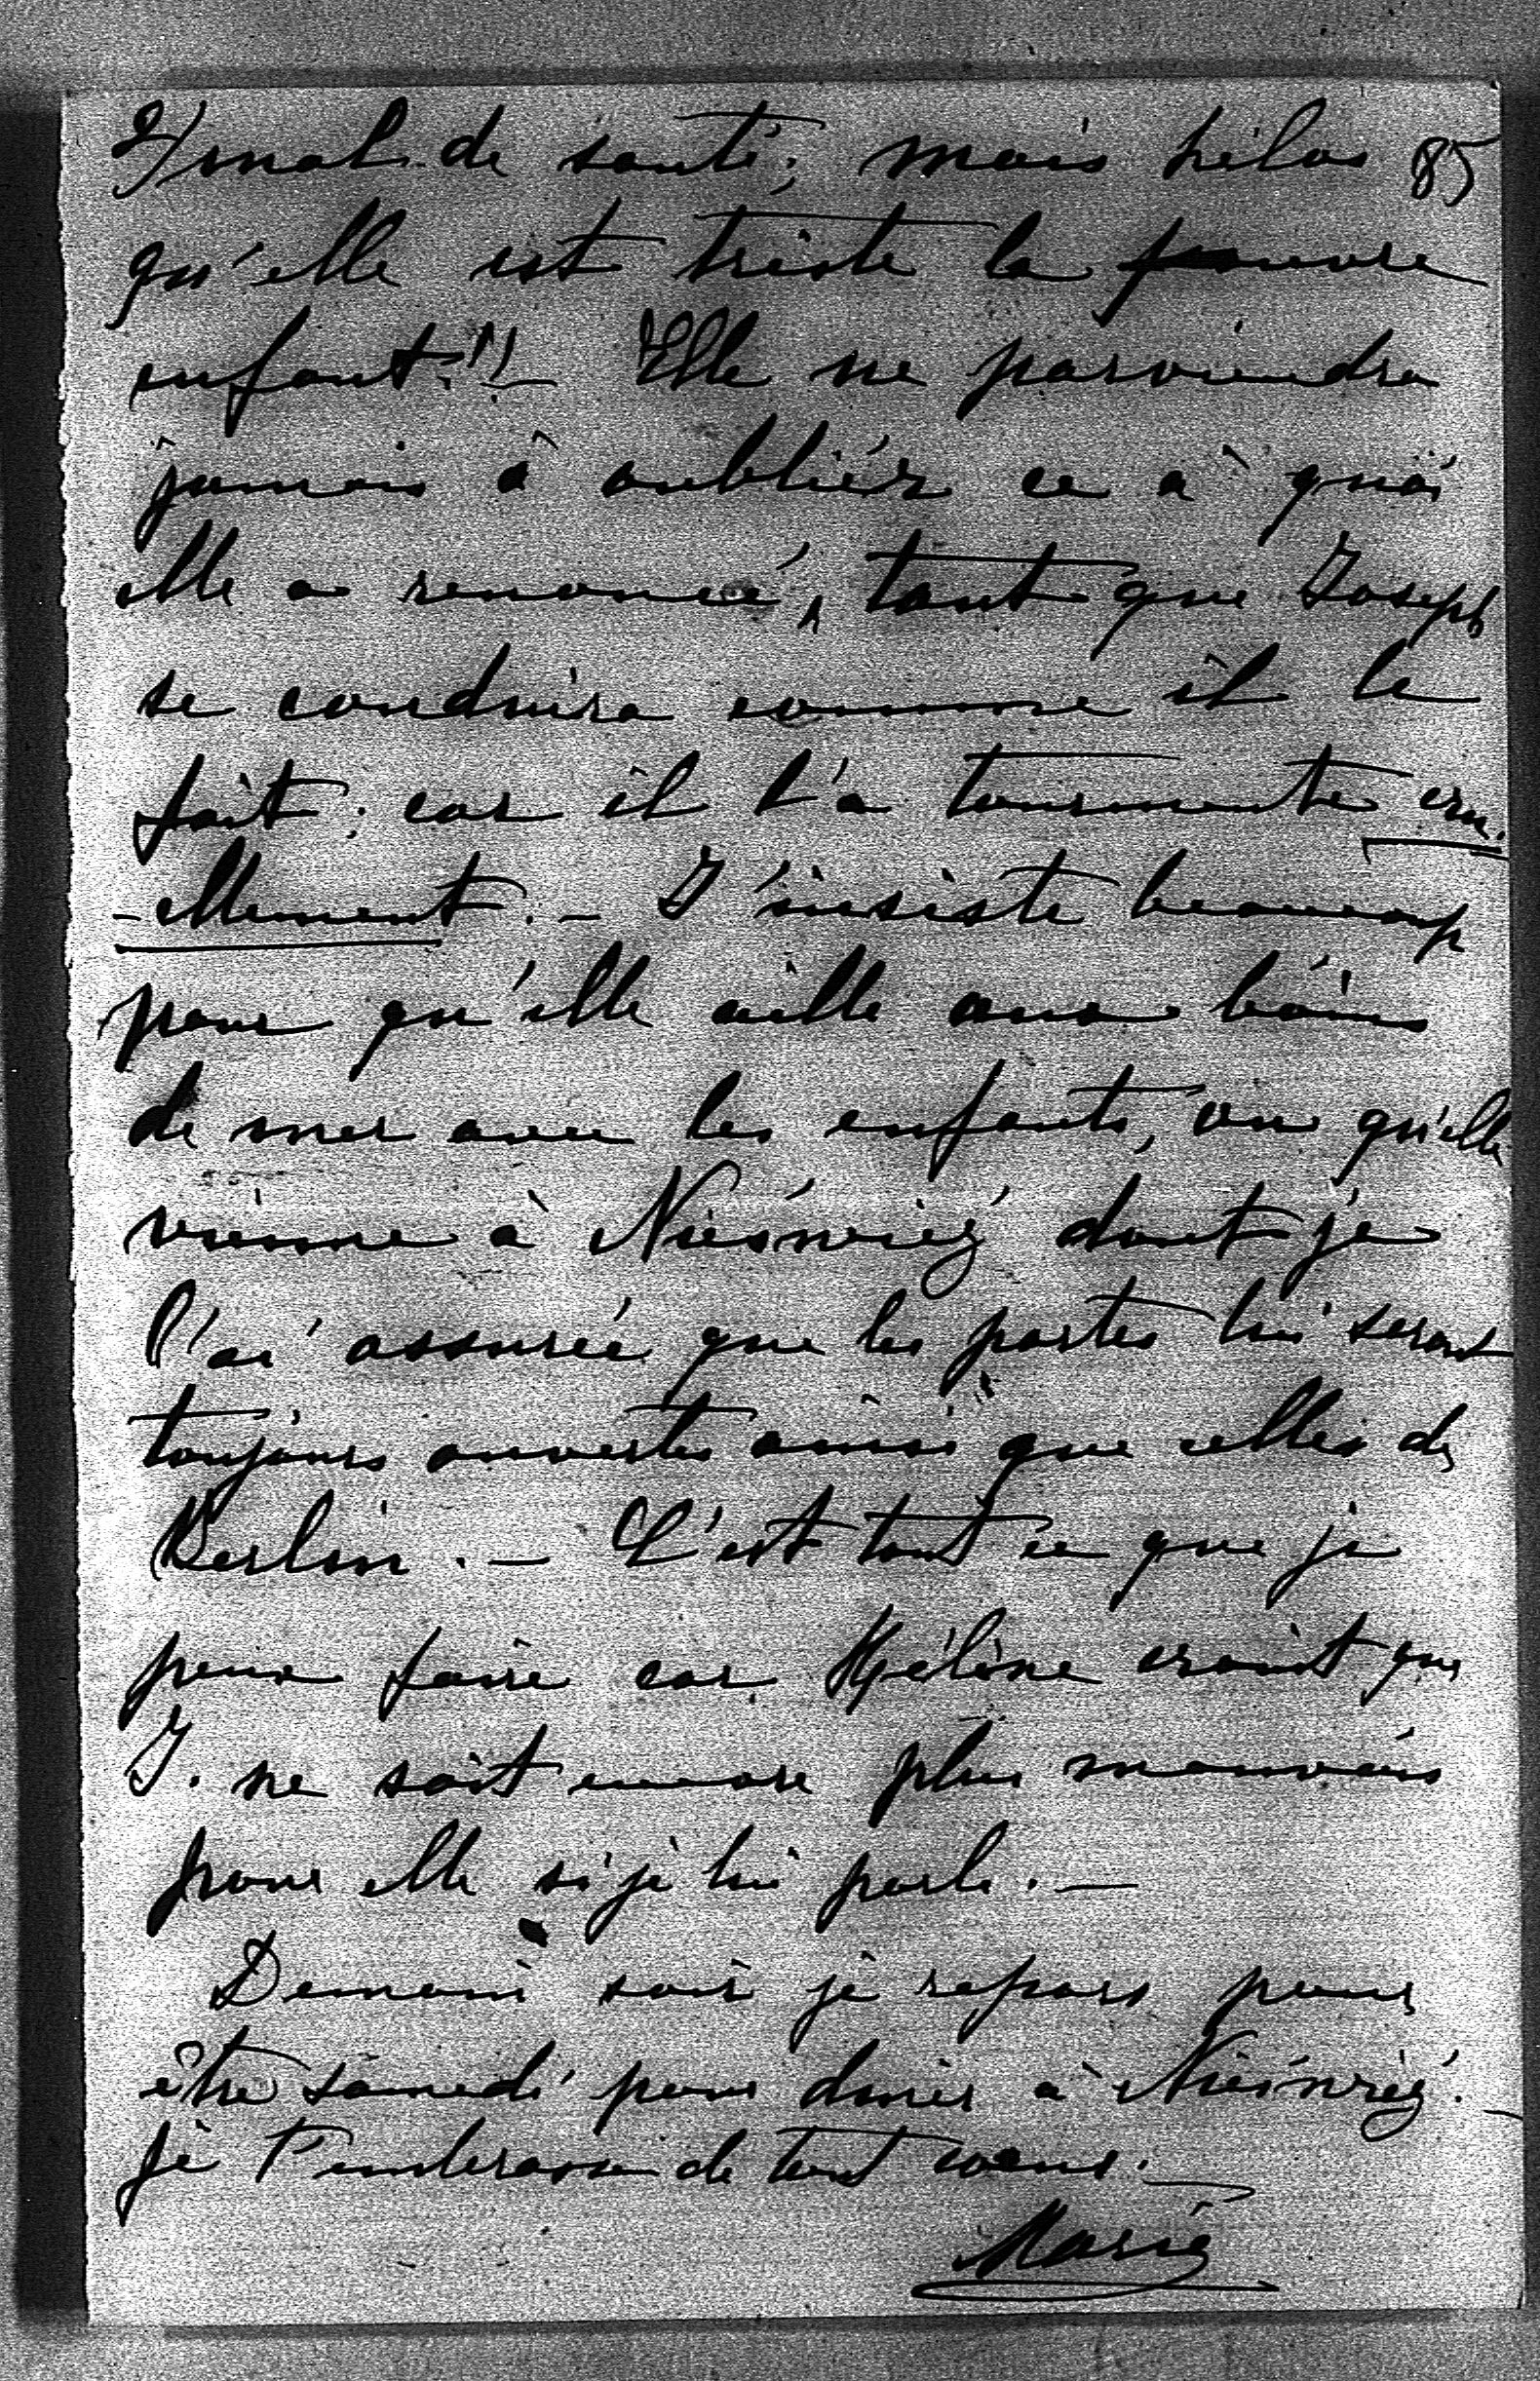 2/ mal de santé; mais hélas 85
qu'elle est triste la pauvre
enfant!!! — Elle ne parviendra
jamais à oublier ce à quoi
elle a renoncé, tant que Joseph
se conduira comme il le
fait; car il l'a tourmente cru-
-ellement. — J'insiste beaucoup
pour qu'elle aille aux bains
de mer avec les enfants, ou qu'elle
vienne à Nieśwież dont je
l'ai assurée que les portes lui seront
toujours ouvertes ainsi que celles de
Berlin. — C'est tout ce que je
peux faire car Hélène craint que
J. ne soit encore plus mauvais
pour elle si je lui parle. —
Demain soir je repars pour
être samedi pour diner à Nieśwież. —
Je t'embrasse de tout coeur. —
Marie